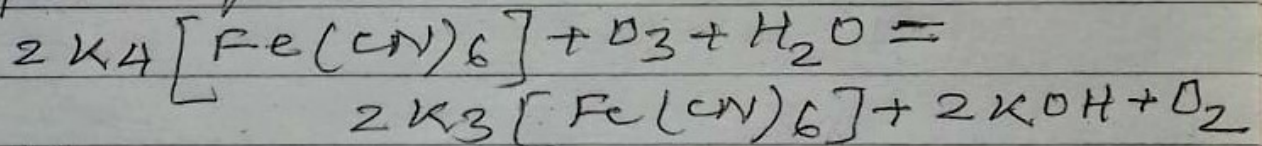 2 K4 [Fe(CN)6] + O3 + H2O =
2 K3 [Fe(CN)6] + 2 KOH + O2